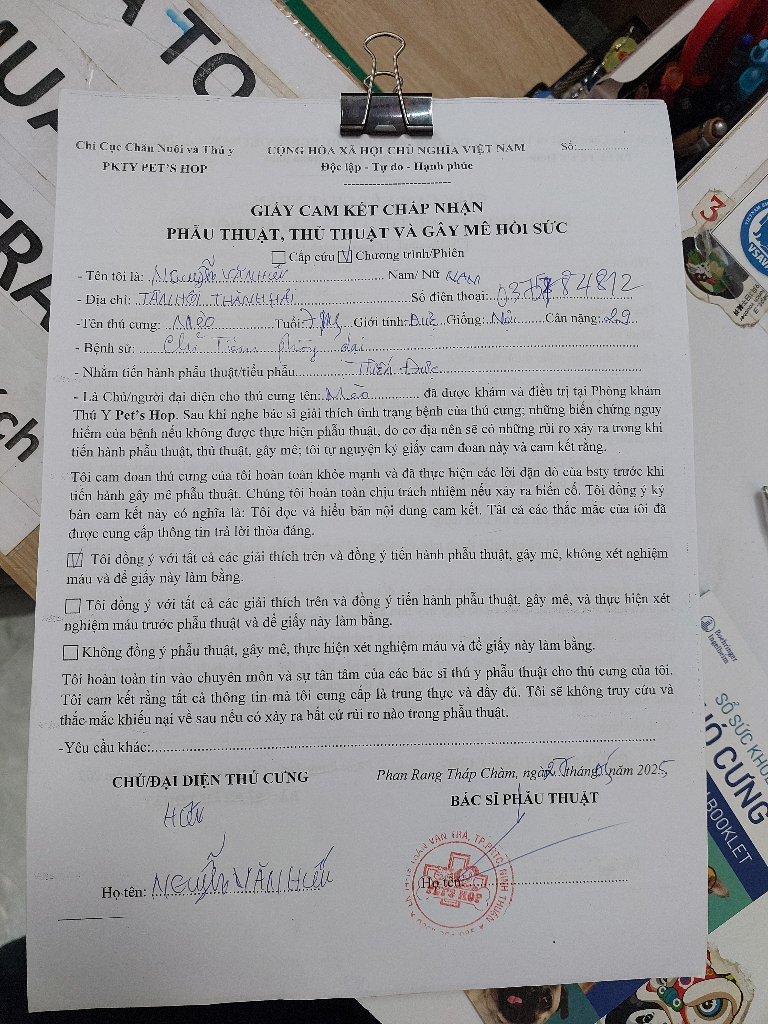 MUA TO
TRA
ch
Chi Cục Chăn Nuôi và Thú y CỘNG HÒA XÃ HỘI CHỦ NGHĨA VIỆT NAM Số:................
PKTY PET'S HOP Độc lập - Tự do - Hạnh phúc
GIẤY CAM KẾT CHẤP NHẬN
PHẪU THUẬT, THỦ THUẬT VÀ GÂY MÊ HỒI SỨC
Cấp cứu Chương trình/Phiên
- Tên tôi là: Nguyễn Văn Hiếu Nam/ Nữ NAM
- Địa chỉ: TÂN HỘI THÀNH HẢI Số điện thoại:
-Tên thú cưng: Mèo Tuổi: Giới tính: Đực Giống: Nội Cân nặng: 2,9
- Bệnh sử: Chủ Tiêm phòng
- Nhằm tiến hành phẫu thuật/tiểu phẫu Thiến Đực
- Là Chủ/người đại diện cho thú cưng tên: Mèo đã được khám và điều trị tại Phòng khám
Thú Y Pet's Hop. Sau khi nghe bác sĩ giải thích tình trạng bệnh của thú cưng; những biến chứng nguy
hiểm của bệnh nếu không được thực hiện phẫu thuật, do cơ địa nên sẽ có những rủi ro xảy ra trong khi
tiến hành phẫu thuật, thủ thuật, gây mê; tôi tự nguyện ký giấy cam đoan này và cam kết rằng.
Tôi cam đoan thú cưng của tôi hoàn toàn khỏe mạnh và đã thực hiện các lời dặn dò của bsty trước khi
tiến hành gây mê phẫu thuật. Chúng tôi hoàn toàn chịu trách nhiệm nếu xảy ra biến cố. Tôi đồng ý ký
bản cam kết này có nghĩa là: Tôi đọc và hiểu bản nội dung cam kết. Tất cả các thắc mắc của tôi đã
được cung cấp thông tin trả lời thỏa đáng.
Tôi đồng ý với tất cả các giải thích trên và đồng ý tiến hành phẫu thuật, gây mê, không xét nghiệm
máu và để giấy này làm bằng.
Tôi đồng ý với tất cả các giải thích trên và đồng ý tiến hành phẫu thuật, gây mê, và thực hiện xét
nghiệm máu trước phẫu thuật và để giấy này làm bằng.
Không đồng ý phẫu thuật, gây mê, thực hiện xét nghiệm máu và để giấy này làm bằng.
Tôi hoàn toàn tin vào chuyên môn và sự tận tâm của các bác sĩ thú y phẫu thuật cho thú cưng của tôi.
Tôi cam kết rằng tất cả thông tin mà tôi cung cấp là trung thực và đầy đủ. Tôi sẽ không truy cứu và
thắc mắc khiếu nại về sau nếu có xảy ra bất cứ rủi ro nào trong phẫu thuật.
-Yêu cầu khác:
Phan Rang Tháp Chàm, ngày tháng năm 2025
CHỦ/ĐẠI DIỆN THÚ CƯNG BÁC SĨ PHẪU THUẬT
Họ tên: Nguyễn VĂN Hiếu Họ tên:
PET'S HOP
3
VSAVA
Boehringer
Ingelheim
SỔ SỨC KHỎE
BOOKLET